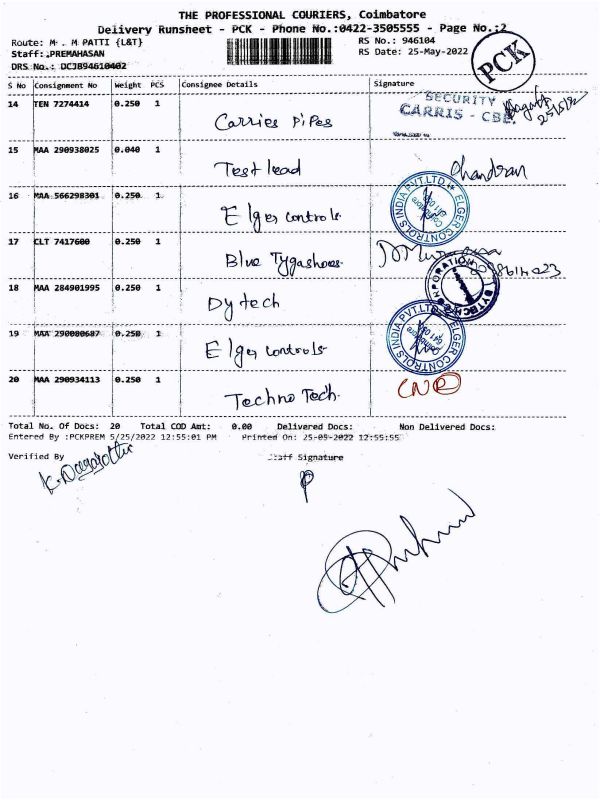 THE PROFESSIONAL COURIERS, Coimbatore
Delivery Runsheet - PCK - Phone No.:0422-3505555 - Page No.:2
Route: M . M PATTI {L&T} RS No.: 946104
Staff:.PREMAHASAN RS Date: 25-May-2022
DRS No.: DCJB94610402
PCK
S No Consignment No Weight PCS Consignee Details Signature
14 TEN 7274414 0.250 1 Carries Pipes
SECURITY
CARRIS - CBE.
15 MAA 290938025 0.040 1 Test lead Chandran
16 MAA 566298301 0.250 1 Elger controls
ELGER CONTROLS INDIA PVT.LTD
17 CLT 7417600 0.250 1 Blue Tygashoes.
18 MAA 284901995 0.250 1 Dytech
19 MAA 290000687 0.250 1 Elger controls
ELGER CONTROLS INDIA PVT.LTD
20 MAA 290934113 0.250 1 Techno Tech. CNR
Total No. Of Docs: 20 Total COD Amt: 0.00 Delivered Docs: Non Delivered Docs:
Entered By :PCKPREM 5/25/2022 12:55:01 PM Printed On: 25-05-2022 12:55:55
Verified By Staff Signature